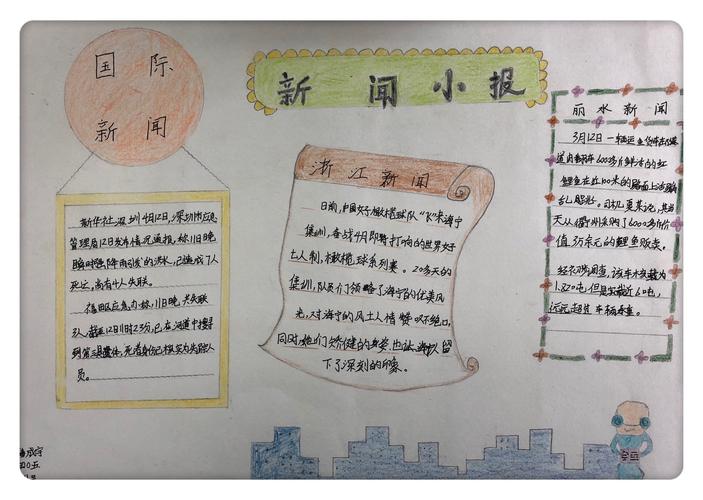 国际
新闻
新闻小报
新华社深圳4月12日,深圳市应急
管理局12日发布情况通报,称11日晚
瞬时强降雨引发的洪水,已造成7人
死亡,尚有4人失联。
福田区应急办称,11日晚,共失联
3人,截至12日11时23分,已在河道中搜寻
到第三具遗体,死者身份已核实为失踪人
员。
浙江新闻
日前,中国女子橄榄球队“飞”来海宁
集训,备战4月即将打响的世界女子
七人制橄榄球系列赛。20多天的
集训,队员们领略了海宁的优美风
光,对海宁的风土人情赞叹不绝口,
同时,她们矫健的身姿也让海宁人留
下了深刻的印象。
丽水新闻
3月12日一辆运鱼货车在
600多斤鲜活的红
鲤鱼在近100米的路面上活蹦
乱跳。司机夏某说,其当
天从衢州采购了6000多斤价
值3万余元的鲤鱼贩卖。
经交警调查,该车水核载为
1.820吨,但是实载近60吨,
远远超过车辆本重。